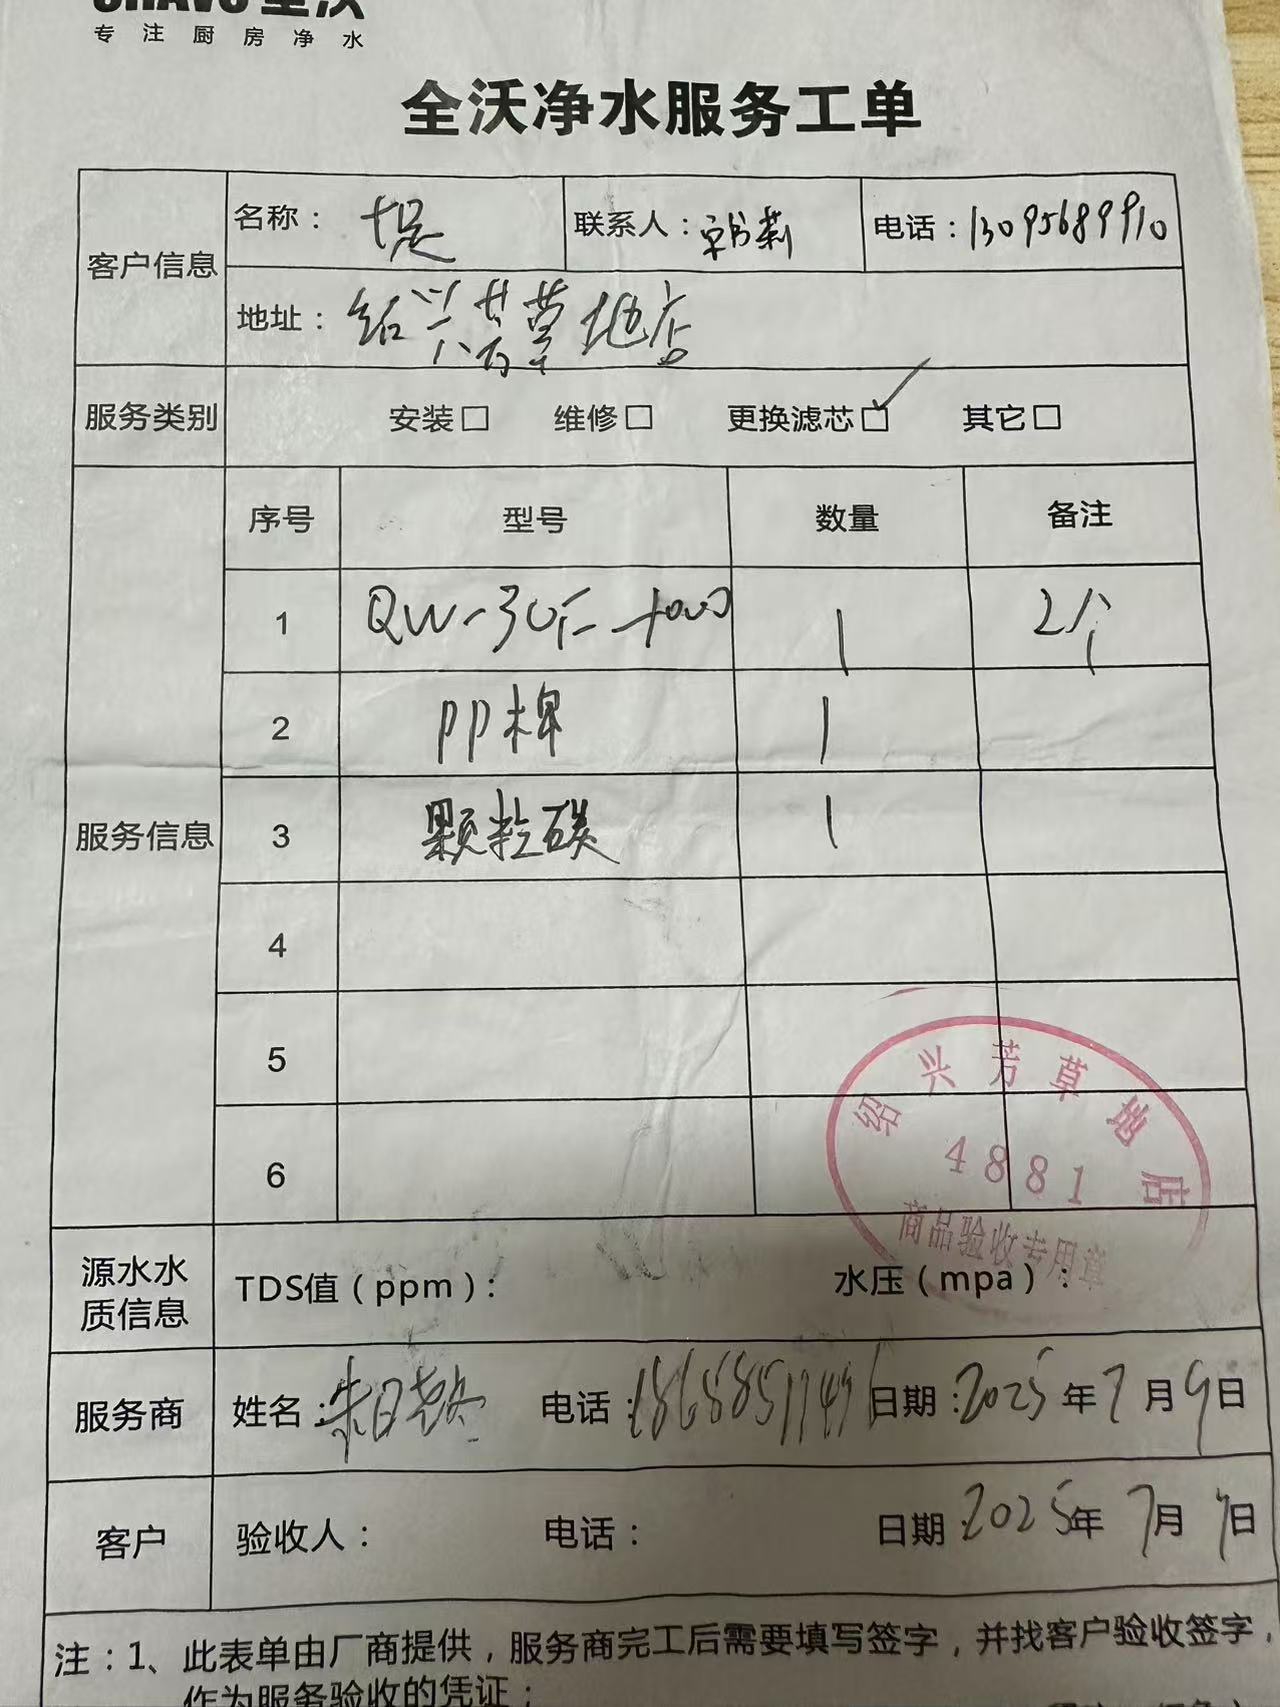 专注厨房净水
全沃净水服务工单
客户信息
名称：
联系人：
电话：13095689910
地址：绍兴芳草地店
服务类别
安装□ 维修□ 更换滤芯□✓ 其它□
服务信息
序号 型号 数量 备注
1 1 2个
2 PP棉 1
3 颗粒碳 1
4
5
6
绍兴芳草地店
4881
商品验收专用章
源水水质信息
TDS值（ppm）： 水压（mpa）：
服务商
姓名： 电话： 日期：2025年7月9日
客户
验收人： 电话： 日期：2025年7月 日
注：1、此表单由厂商提供，服务商完工后需要填写签字，并找客户验收签字，
作为服务验收的凭证；